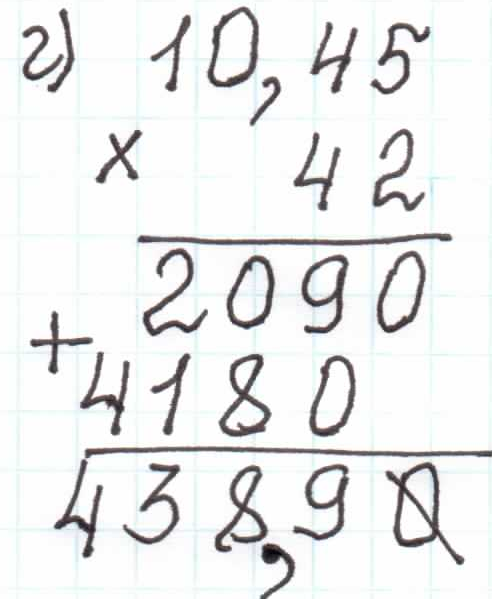 г) 10,45
× 42
2090
+ 4180
438,90